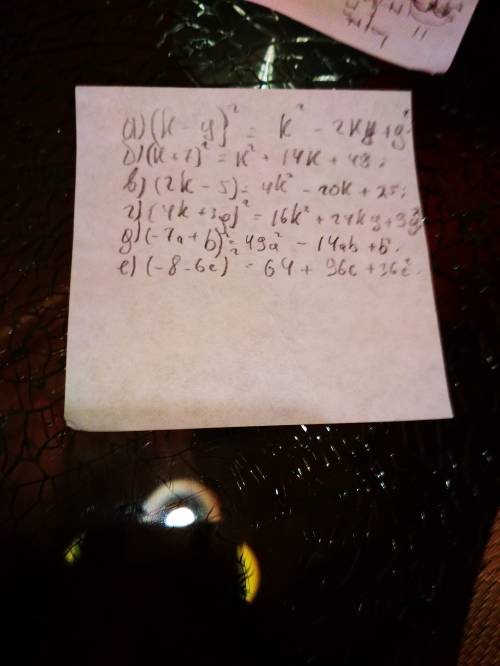 а) (к - y)² = к² - 2кy + y²;
б) (к + 7)² = к² + 14к + 49;
в) (2к - 5) = 4к² - 20к + 25;
г) (4к + 3y)² = 16к² + 24кy + 9y²
д) (-7a + b)² = 49a² - 14ab + b².
е) (-8 - 6c)² = 64 + 96c + 36c².